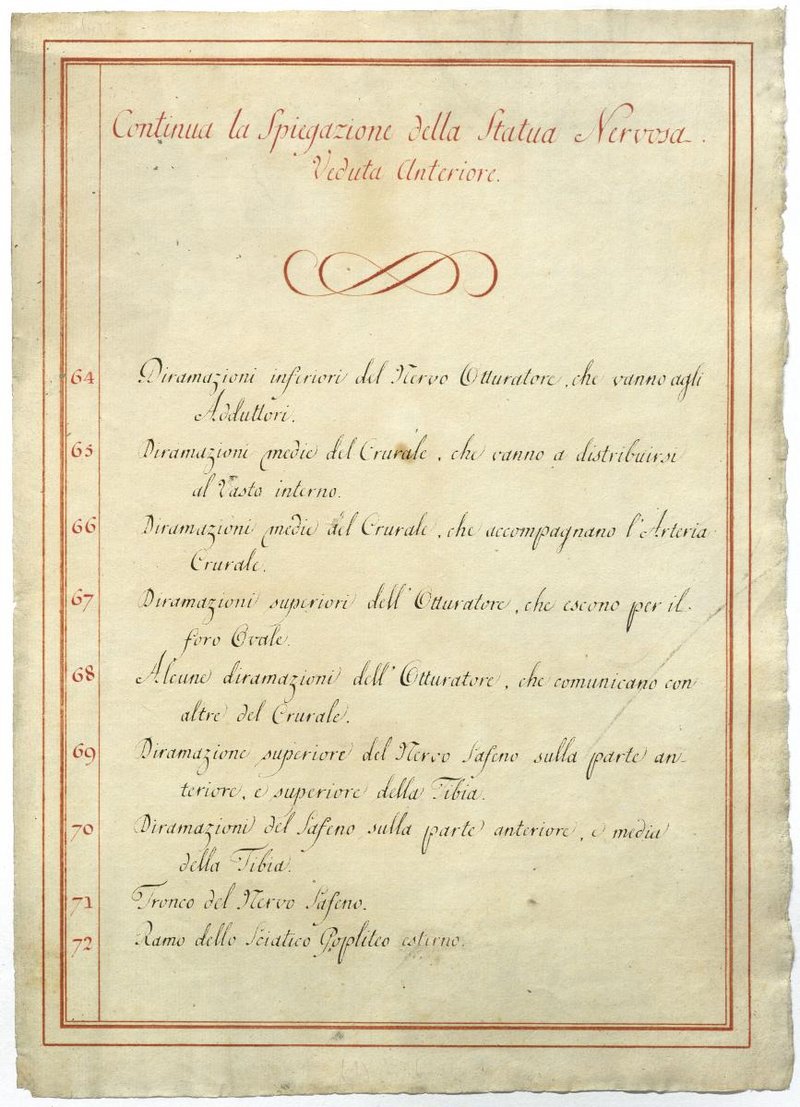 Continua la Spiegazione della Statua Nervosa.
Veduta Anteriore.
64 Diramazioni inferiori del Nervo Otturatore, che vanno agli
Adduttori.
65 Diramazioni medie del Crurale, che vanno a distribuirsi
al Vasto interno.
66 Diramazioni medie del Crurale, che accompagnano l'Arteria
Crurale.
67 Diramazioni superiori dell'Otturatore, che escono per il
foro Ovale.
68 Alcune diramazioni dell'Otturatore, che comunicano con
altre del Crurale.
69 Diramazione superiore del Nervo Safeno sulla parte an-
teriore, e superiore della Tibia.
70 Diramazioni del Safeno sulla parte anteriore, e media
della Tibia.
71 Tronco del Nervo Safeno.
72 Ramo dello Sciatico Popliteo esterno.